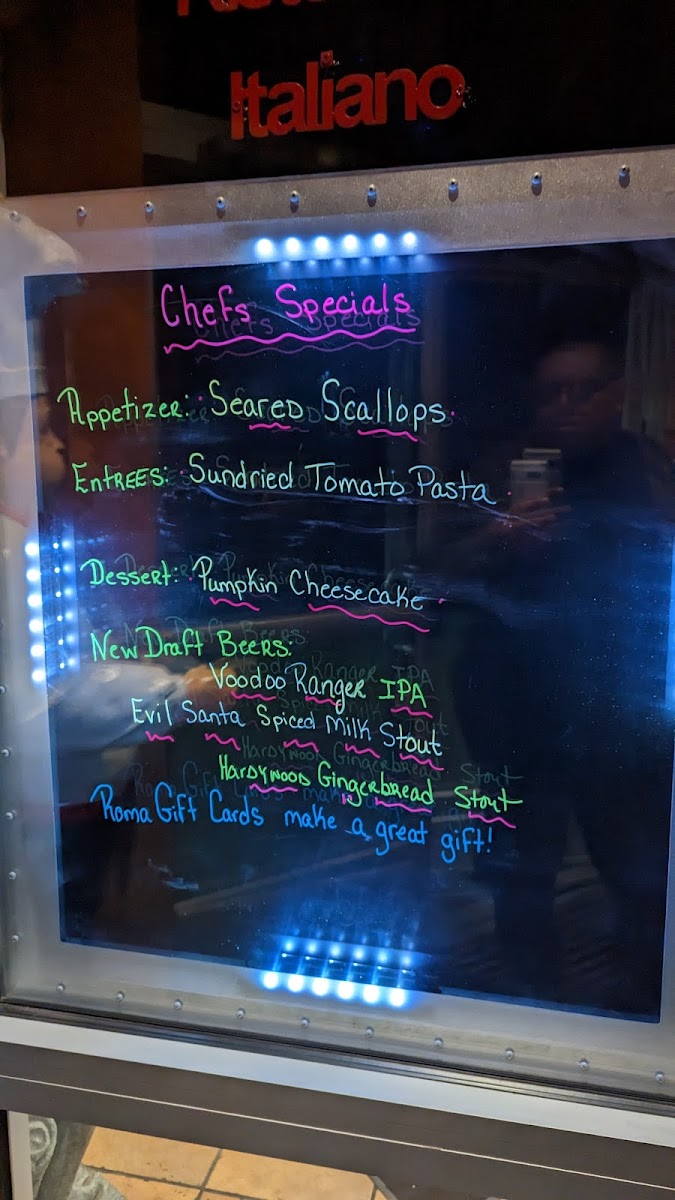 Italiano
Chefs Specials
Appetizer: Seared Scallops
Entrees: Sundried Tomato Pasta
Dessert: Pumpkin Cheesecake
New Draft Beers:
Voodoo Ranger IPA
Evil Santa Spiced Milk Stout
Hardywood Gingerbread Stout
Roma Gift Cards make a great gift!